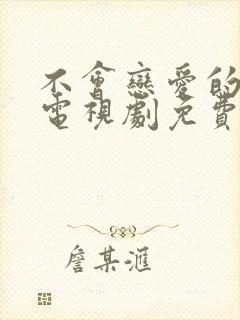 不會戀愛的
電視劇免費
詹某滙